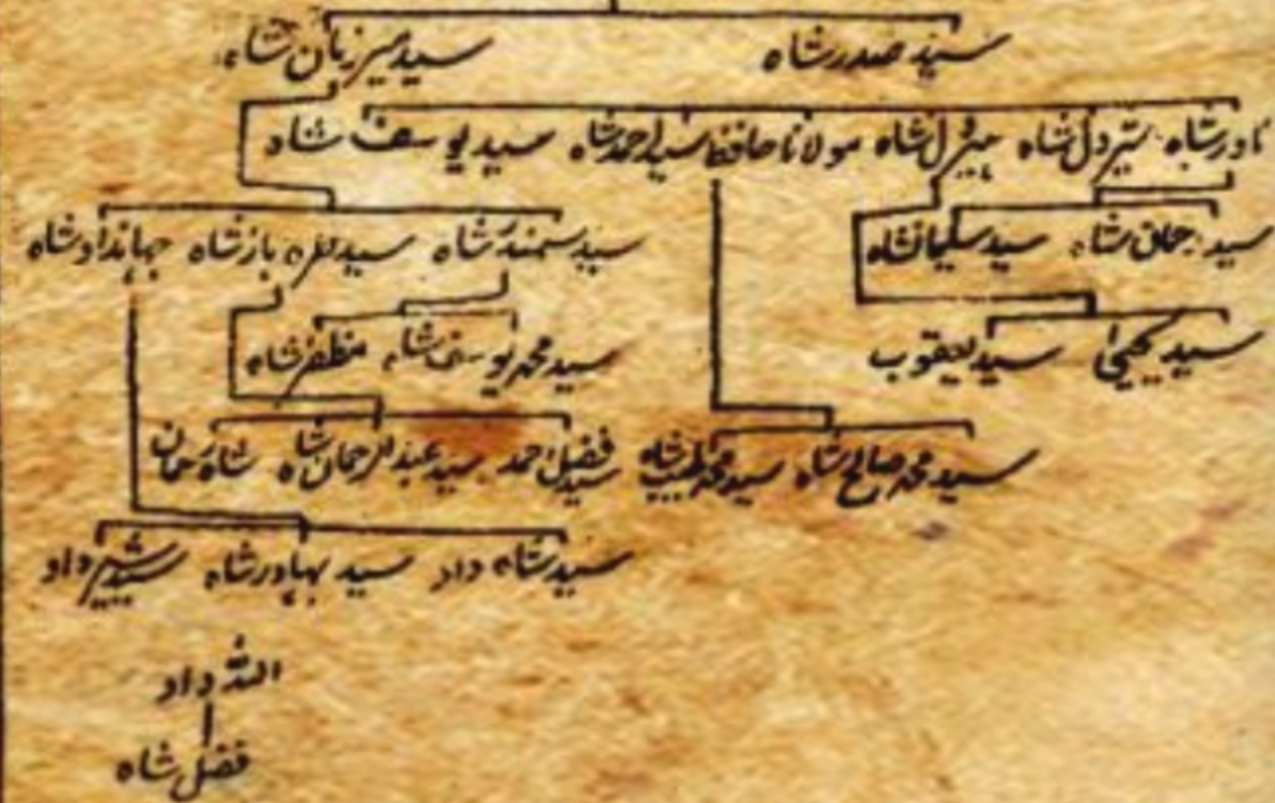 سید صدر شاہ سید میر زمان شاہ
نادر شاہ شیر دل شاہ پیر دل شاہ مولانا حافظ سید احمد شاہ سید یوسف شاہ
سید رحمان شاہ سید سلیمان شاہ سید سمندر شاہ سید للرہ باز شاہ جہانداد شاہ
سید یحییٰ سید یعقوب سید محمد یوسف شاہ مظفر شاہ
سید محمد صالح شاہ سید محمد طیب شاہ سید فضل احمد سید عبدالرحمان شاہ شاہ زمان
سید شاہ داد سید بہادر شاہ سید شیر داد
اللہ داد
فضل شاہ